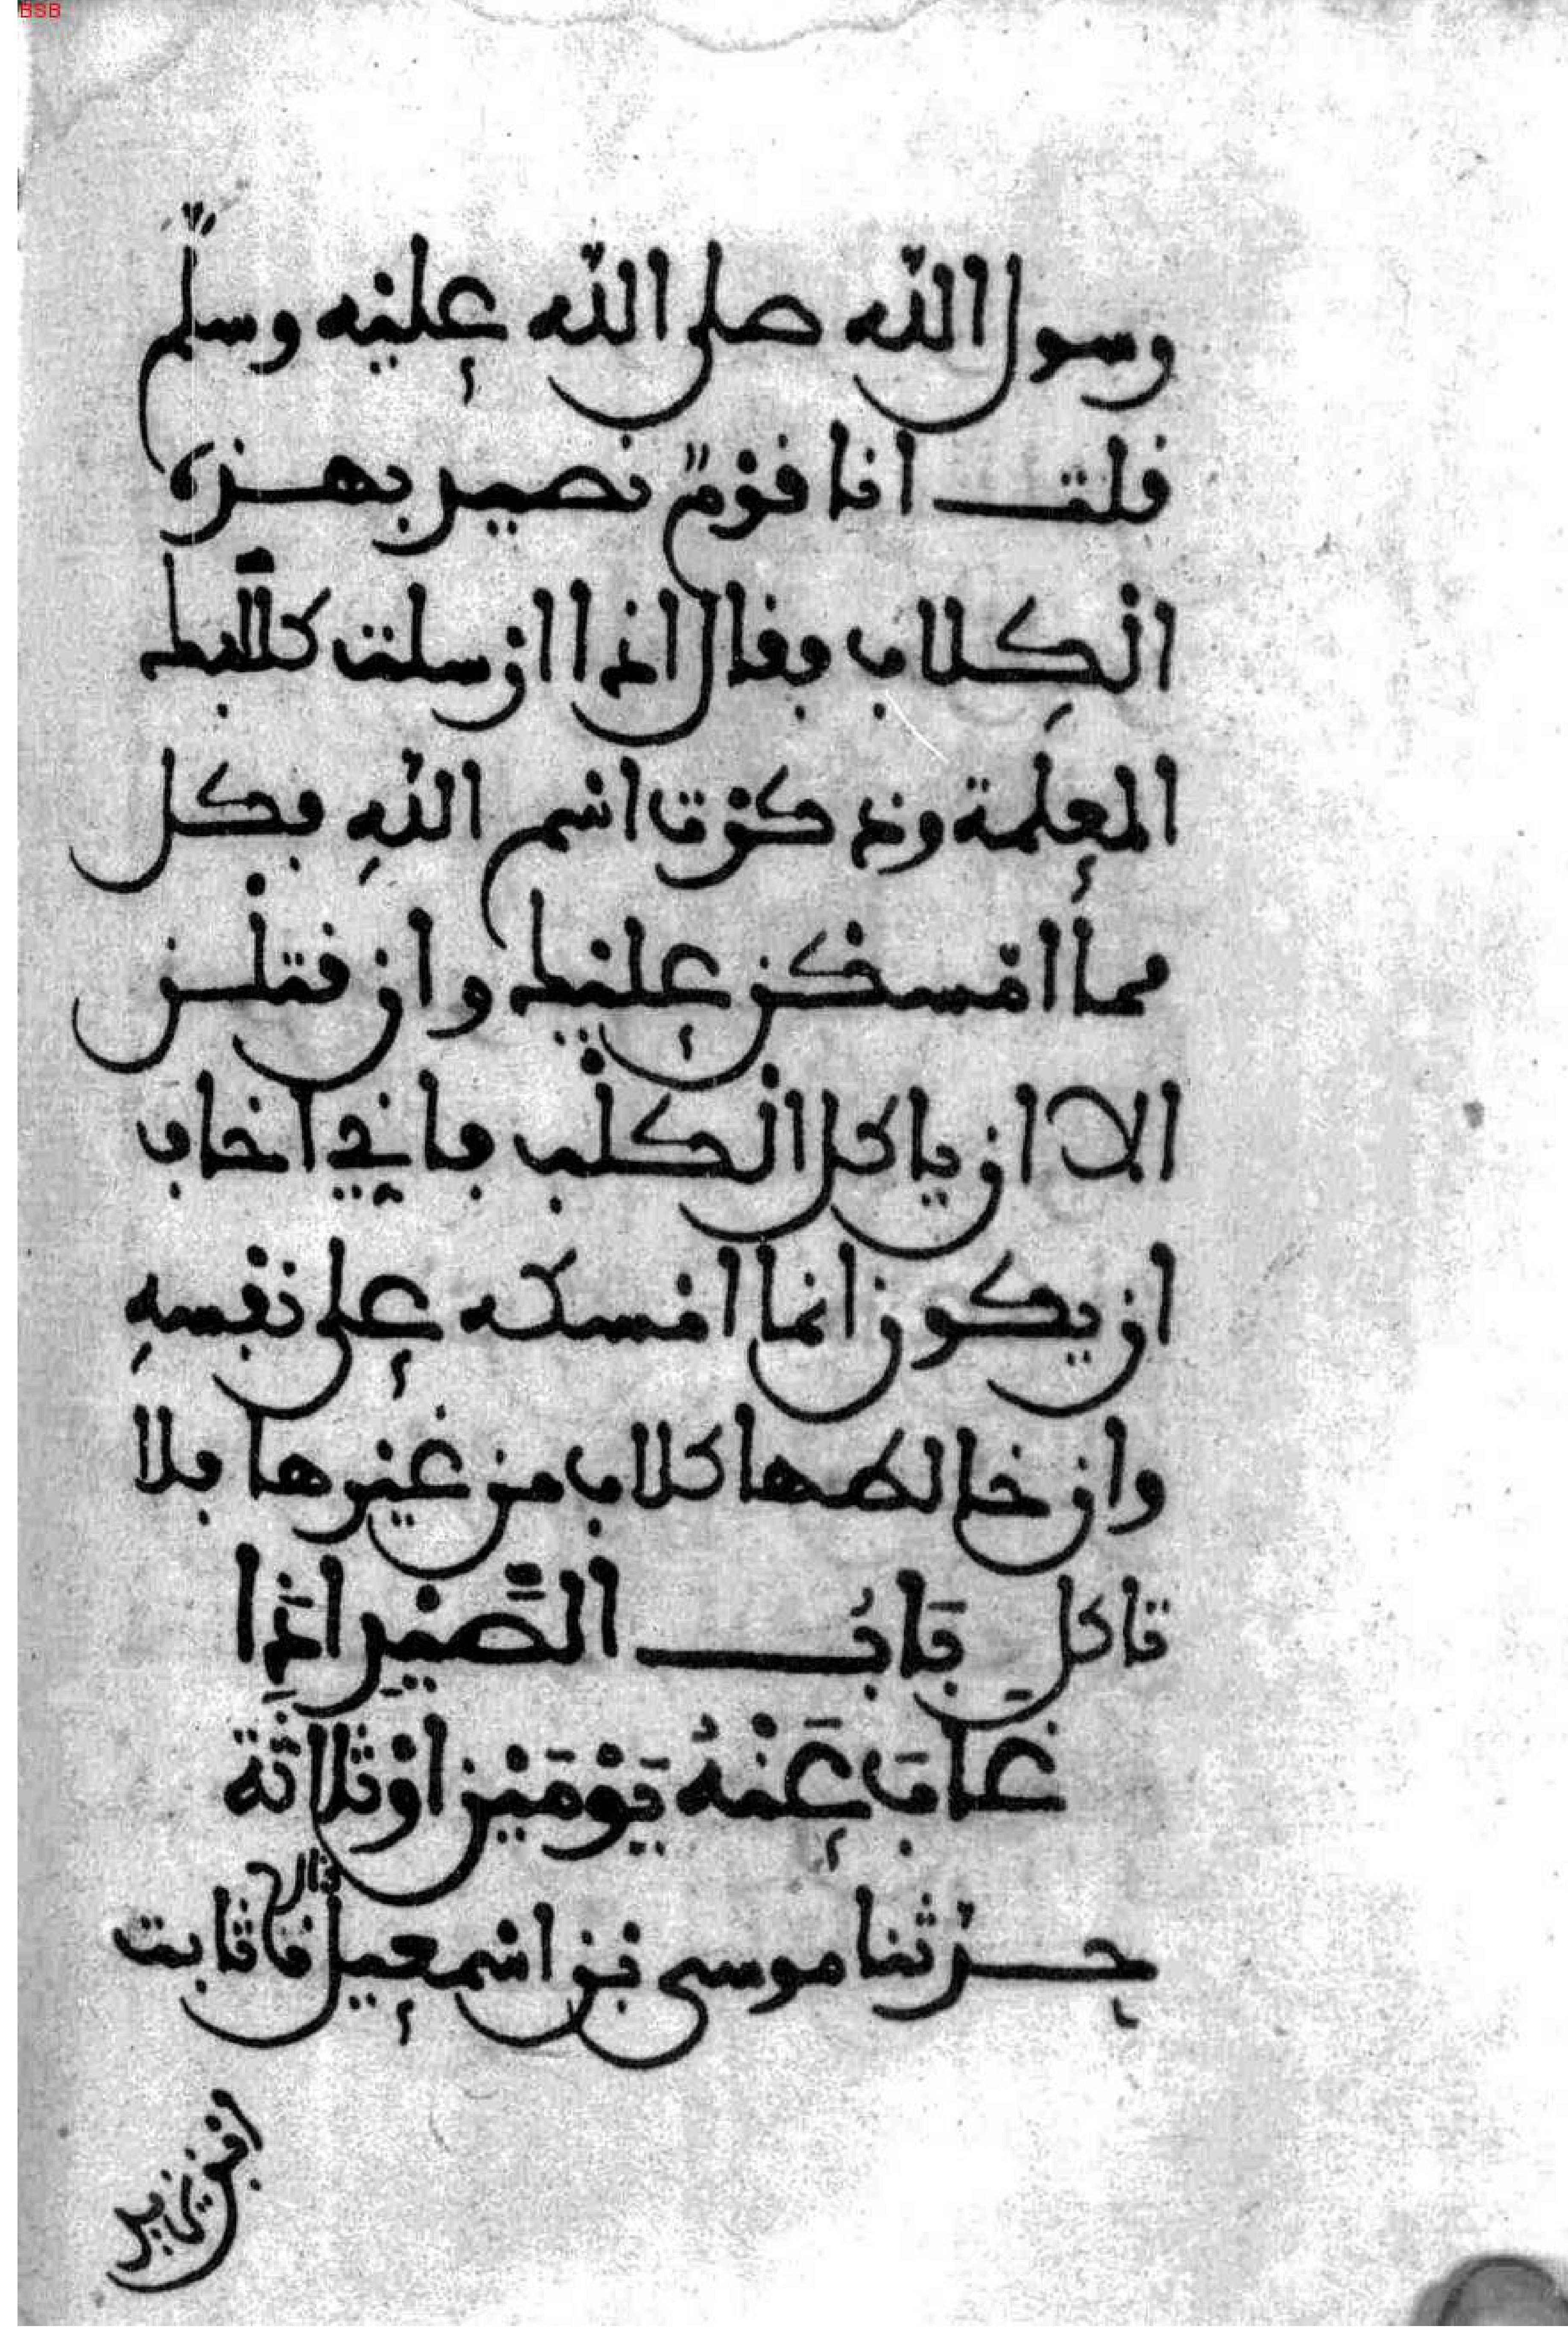 BSB
رسول الله صلى الله عليه وسلم
قلت انا قوم نصيد بهذه
الكلاب فقال اذا ارسلت كلابك
المعلمة وذكرت اسم الله فكل
مما امسكن عليك وان قتلن
الا ان ياكل الكلب فاني اخاف
ان يكون انما امسكه على نفسه
وان خالطها كلاب من غيرها فلا
تاكل باب الصيد اذا
غاب عنه يومين او ثلاثة
حدثنا موسى بن اسمعيل قال نا ثابت
ابن يزيد